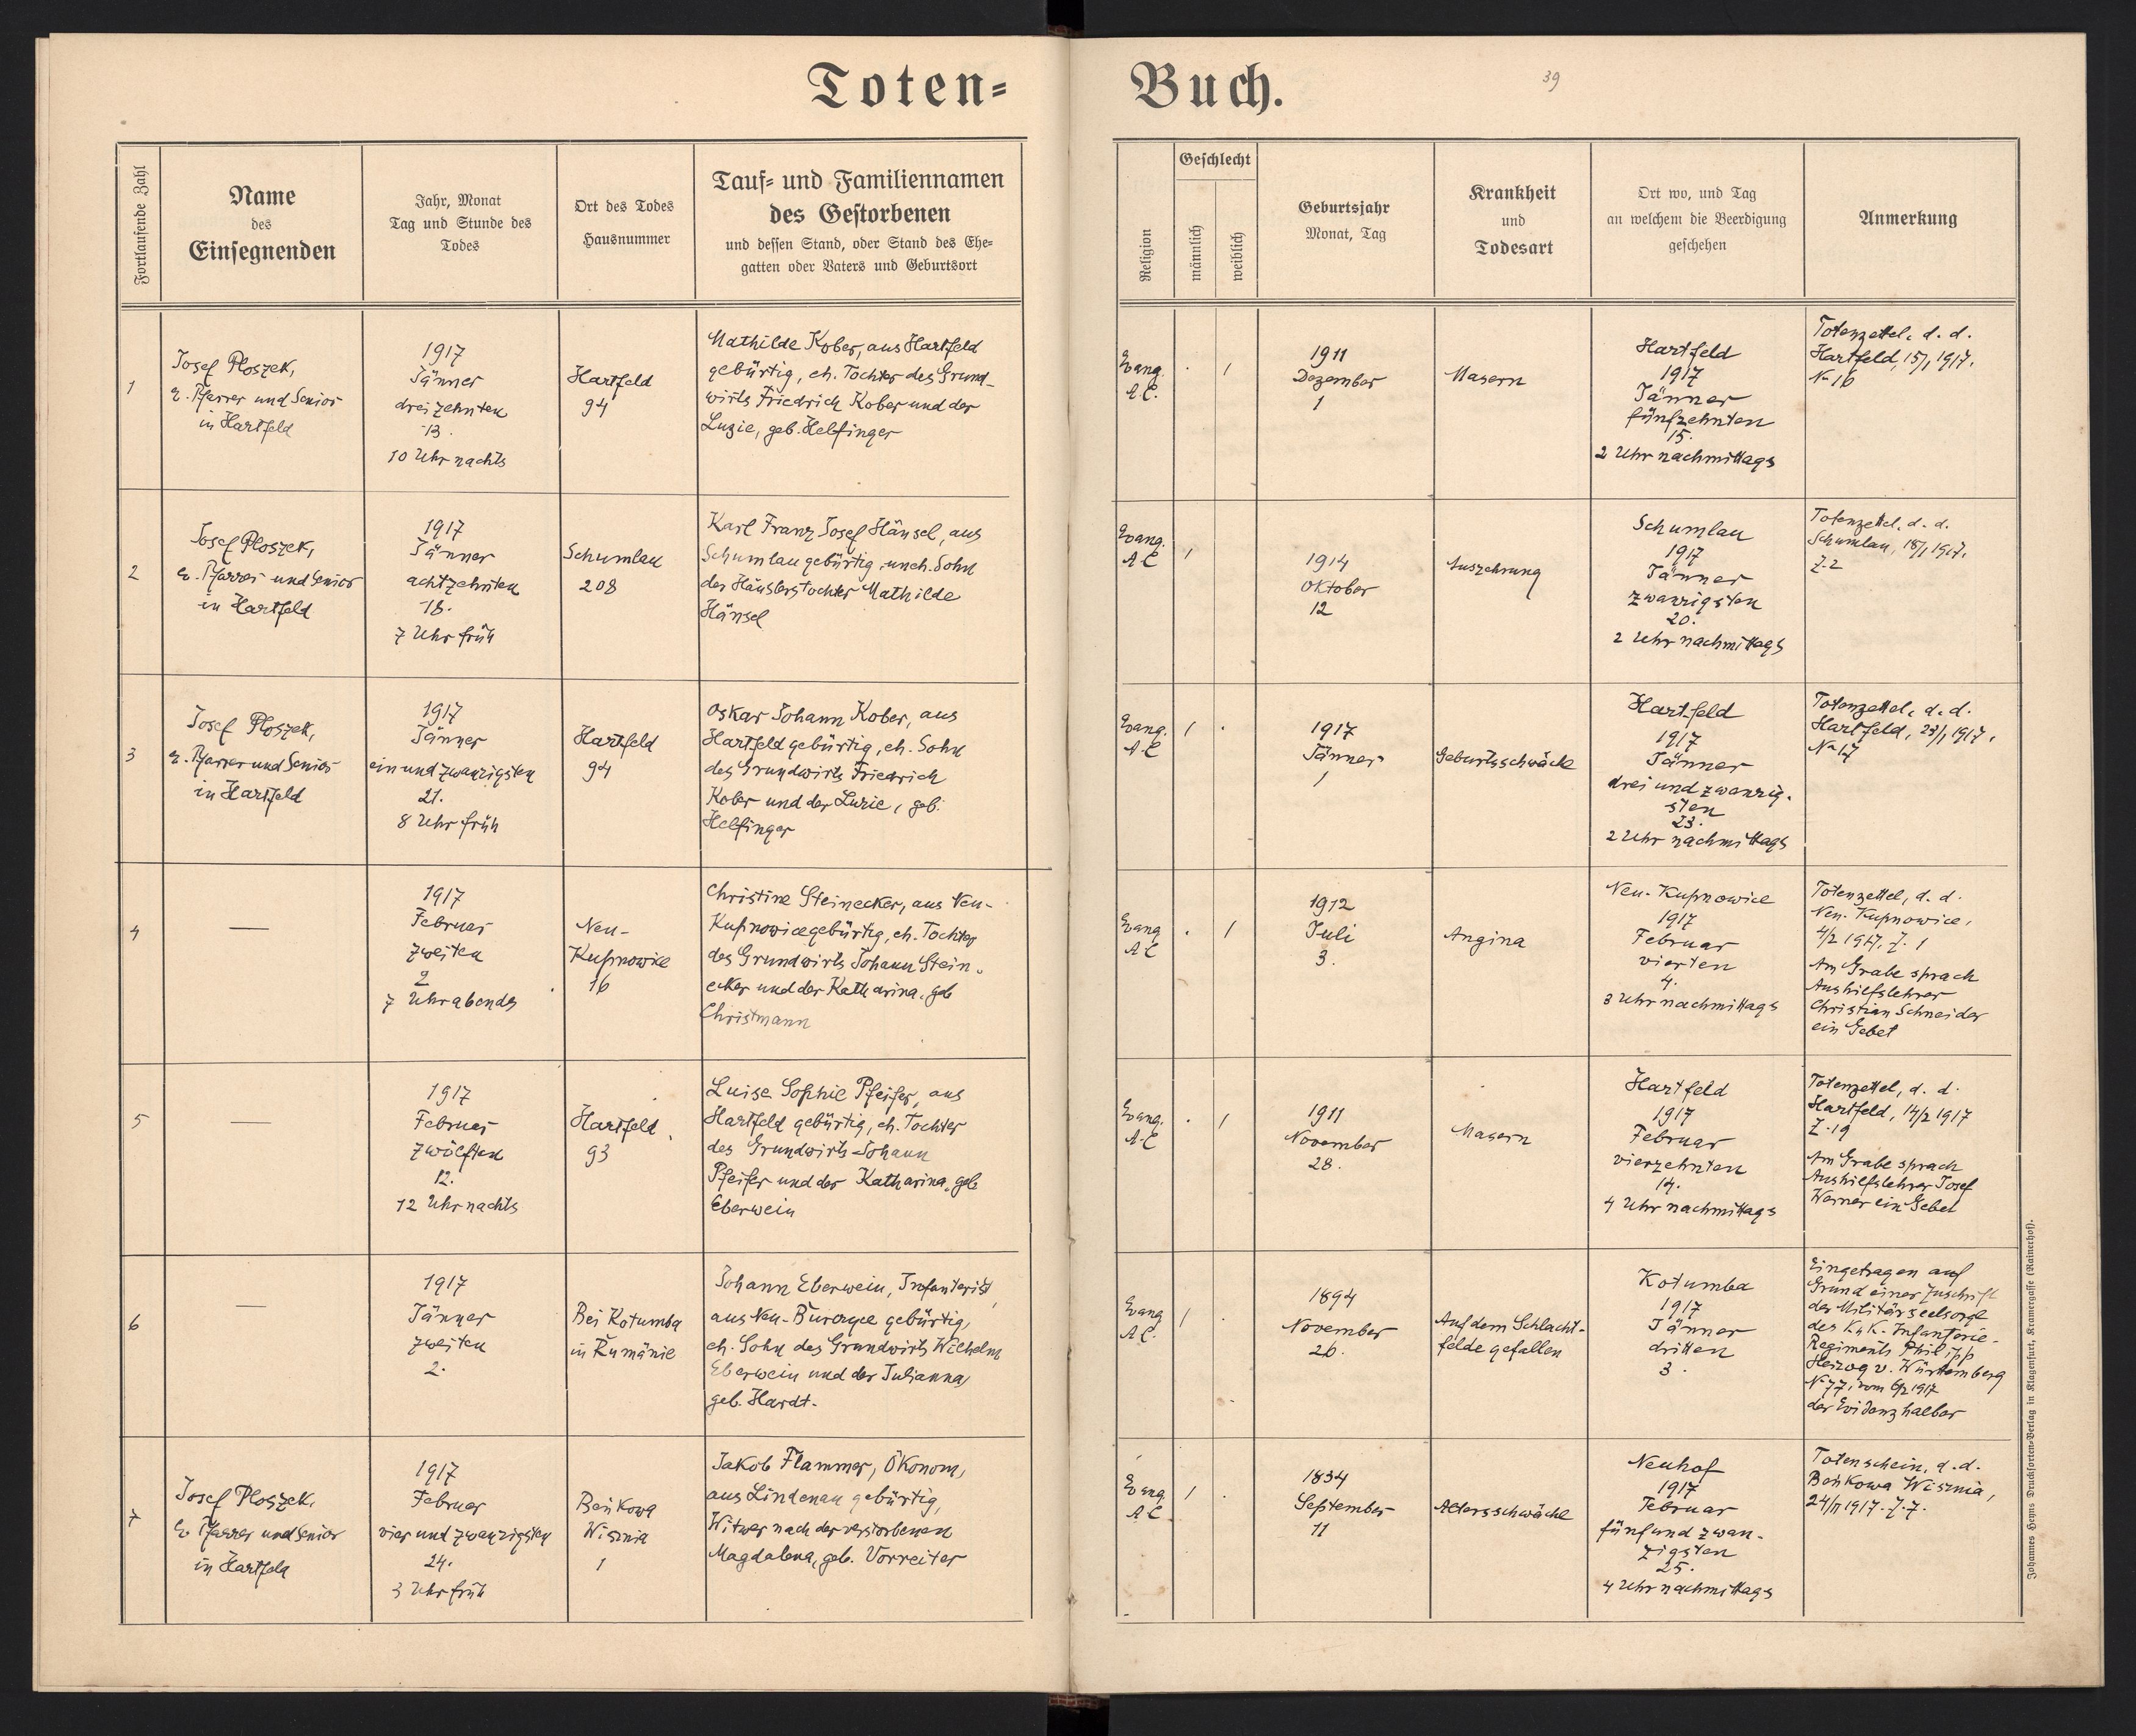 Toten=
Buch.
39
Fortlaufende Zahl
Name
des
Einsegnenden
Jahr, Monat
Tag und Stunde des
Todes
Ort des Todes
Hausnummer
Tauf= und Familiennamen
des Gestorbenen
und dessen Stand, oder Stand des Ehe=
gatten oder Vaters und Geburtsort
Religion
Geschlecht
männlich
weiblich
Geburtsjahr
Monat, Tag
Krankheit
und
Todesart
Ort wo, und Tag
an welchem die Beerdigung
geschehen
Anmerkung
1
Josef Ploszek,
e. Pfarrer und Senior
in Hartfeld
1917
Jänner
dreizehnten
13.
10 Uhr nachts
Hartfeld
94
Mathilde Kober, aus Hartfeld
gebürtig, eh. Tochter des Grund-
wirts Friedrich Kober und der
Luzie, geb. Helfinger
Evang.
A.C.
. /
1911
Dezember
1
Masern
Hartfeld
1917
Jänner
fünfzehnten
15.
2 Uhr nachmittags
Totenzettel, d. d.
Hartfeld, 15/1 1917.
No 16
2
Josef Ploszek,
ev. Pfarrer und Senior
in Hartfeld
1917
Jänner
achtzehnten
18.
7 Uhr früh
Schumlau
208
Karl Franz Josef Hänsel, aus
Schumlau gebürtig, uneh. Sohn
der Häuslerstochter Mathilde
Hänsel
Evang.
A C
/
1914
Oktober
12
Auszehrung
Schumlau
1917
Jänner
zwanzigsten
20.
2 Uhr nachmittags
Totenzettel, d. d.
Schumlau, 18/1 1917.
Z. 2
3
Josef Ploszek,
e. Pfarrer und Senior
in Hartfeld
1917
Jänner
einundzwanzigsten
21.
8 Uhr früh
Hartfeld
94
Oskar Johann Kober, aus
Hartfeld gebürtig, eh. Sohn
des Grundwirts Friedrich
Kober und der Luzie, geb.
Helfinger
Evang.
A C
/ .
1917
Jänner
1
Geburtsschwäche
Hartfeld
1917
Jänner
drei und zwanzig-
sten
23.
2 Uhr nachmittags
Totenzettel, d. d.
Hartfeld, 23/1 1917.
No 17
4
—
1917
Februar
zweiten
2
7 Uhr abends
Neu-
Kupnowice
16
Christine Steinecker, aus Neu-
Kupnowice gebürtig, eh. Tochter
des Grundwirts Johann Stein-
ecker und der Katharina, geb
Christmann
Evang
A C
. /
1912
Juli
3.
Angina
Neu-Kupnowice
1917
Februar
vierten
4.
3 Uhr nachmittags
Totenzettel, d. d.
Neu-Kupnowice,
4/2 1917, Z. 1
Am Grabe sprach
Aushilfslehrer
Christian Schneider
ein Gebet
5
—
1917
Februar
zwölften
12.
12 Uhr nachts
Hartfeld
93
Luise Sophie Pfeifer, aus
Hartfeld gebürtig, eh. Tochter
des Grundwirts Johann
Pfeifer und der Katharina, geb.
Eberwein
Evang.
A C
. /
1911
November
28.
Masern
Hartfeld
1917
Februar
vierzehnten
14.
4 Uhr nachmittags
Totenzettel, d. d.
Hartfeld, 14/2 1917
Z. 19
Am Grabe sprach
Aushilfslehrer Josef
Werner ein Gebet
6
—
1917
Jänner
zweiten
2.
Bei Kotumba
in Rumänie
Johann Eberwein, Infanterist,
aus Neu-Burczyce gebürtig,
eh. Sohn des Grundwirts Wilhelm
Eberwein und der Julianna,
geb. Hardt.
Evang
A C.
/ .
1894
November
26.
Auf dem Schlacht-
felde gefallen
Kotumba
1917
Jänner
dritten
3.
Eingetragen auf
Grund einer Zuschrift
der Militärseelsorge
des K. u. K. Infanterie-
Regiments Philipp
Herzog v. Württemberg
No 77, vom 6/2 1917
der Evidenz halber
7
Josef Ploszek,
ev Pfarrer und Senior
in Hartfeld
1917
Februar
vier und zwanzigsten
24.
3 Uhr früh
Beńkowa
Wisznia
1
Jakob Flammer, Ökonom,
aus Lindenau gebürtig,
Witwer nach der verstorbenen
Magdalena, geb. Vorreiter
Evang.
A C
/ .
1834
September
11
Altersschwäche
Neuhof
1917
Februar
fünfund zwan-
zigsten
25.
4 Uhr nachmittags
Totenschein, d. d.
Beńkowa Wisznia,
24/II 1917. Z. 7.
Johannes Heyns Drucksorten=Verlag in Klagenfurt, Kramergasse (Rainerhof).